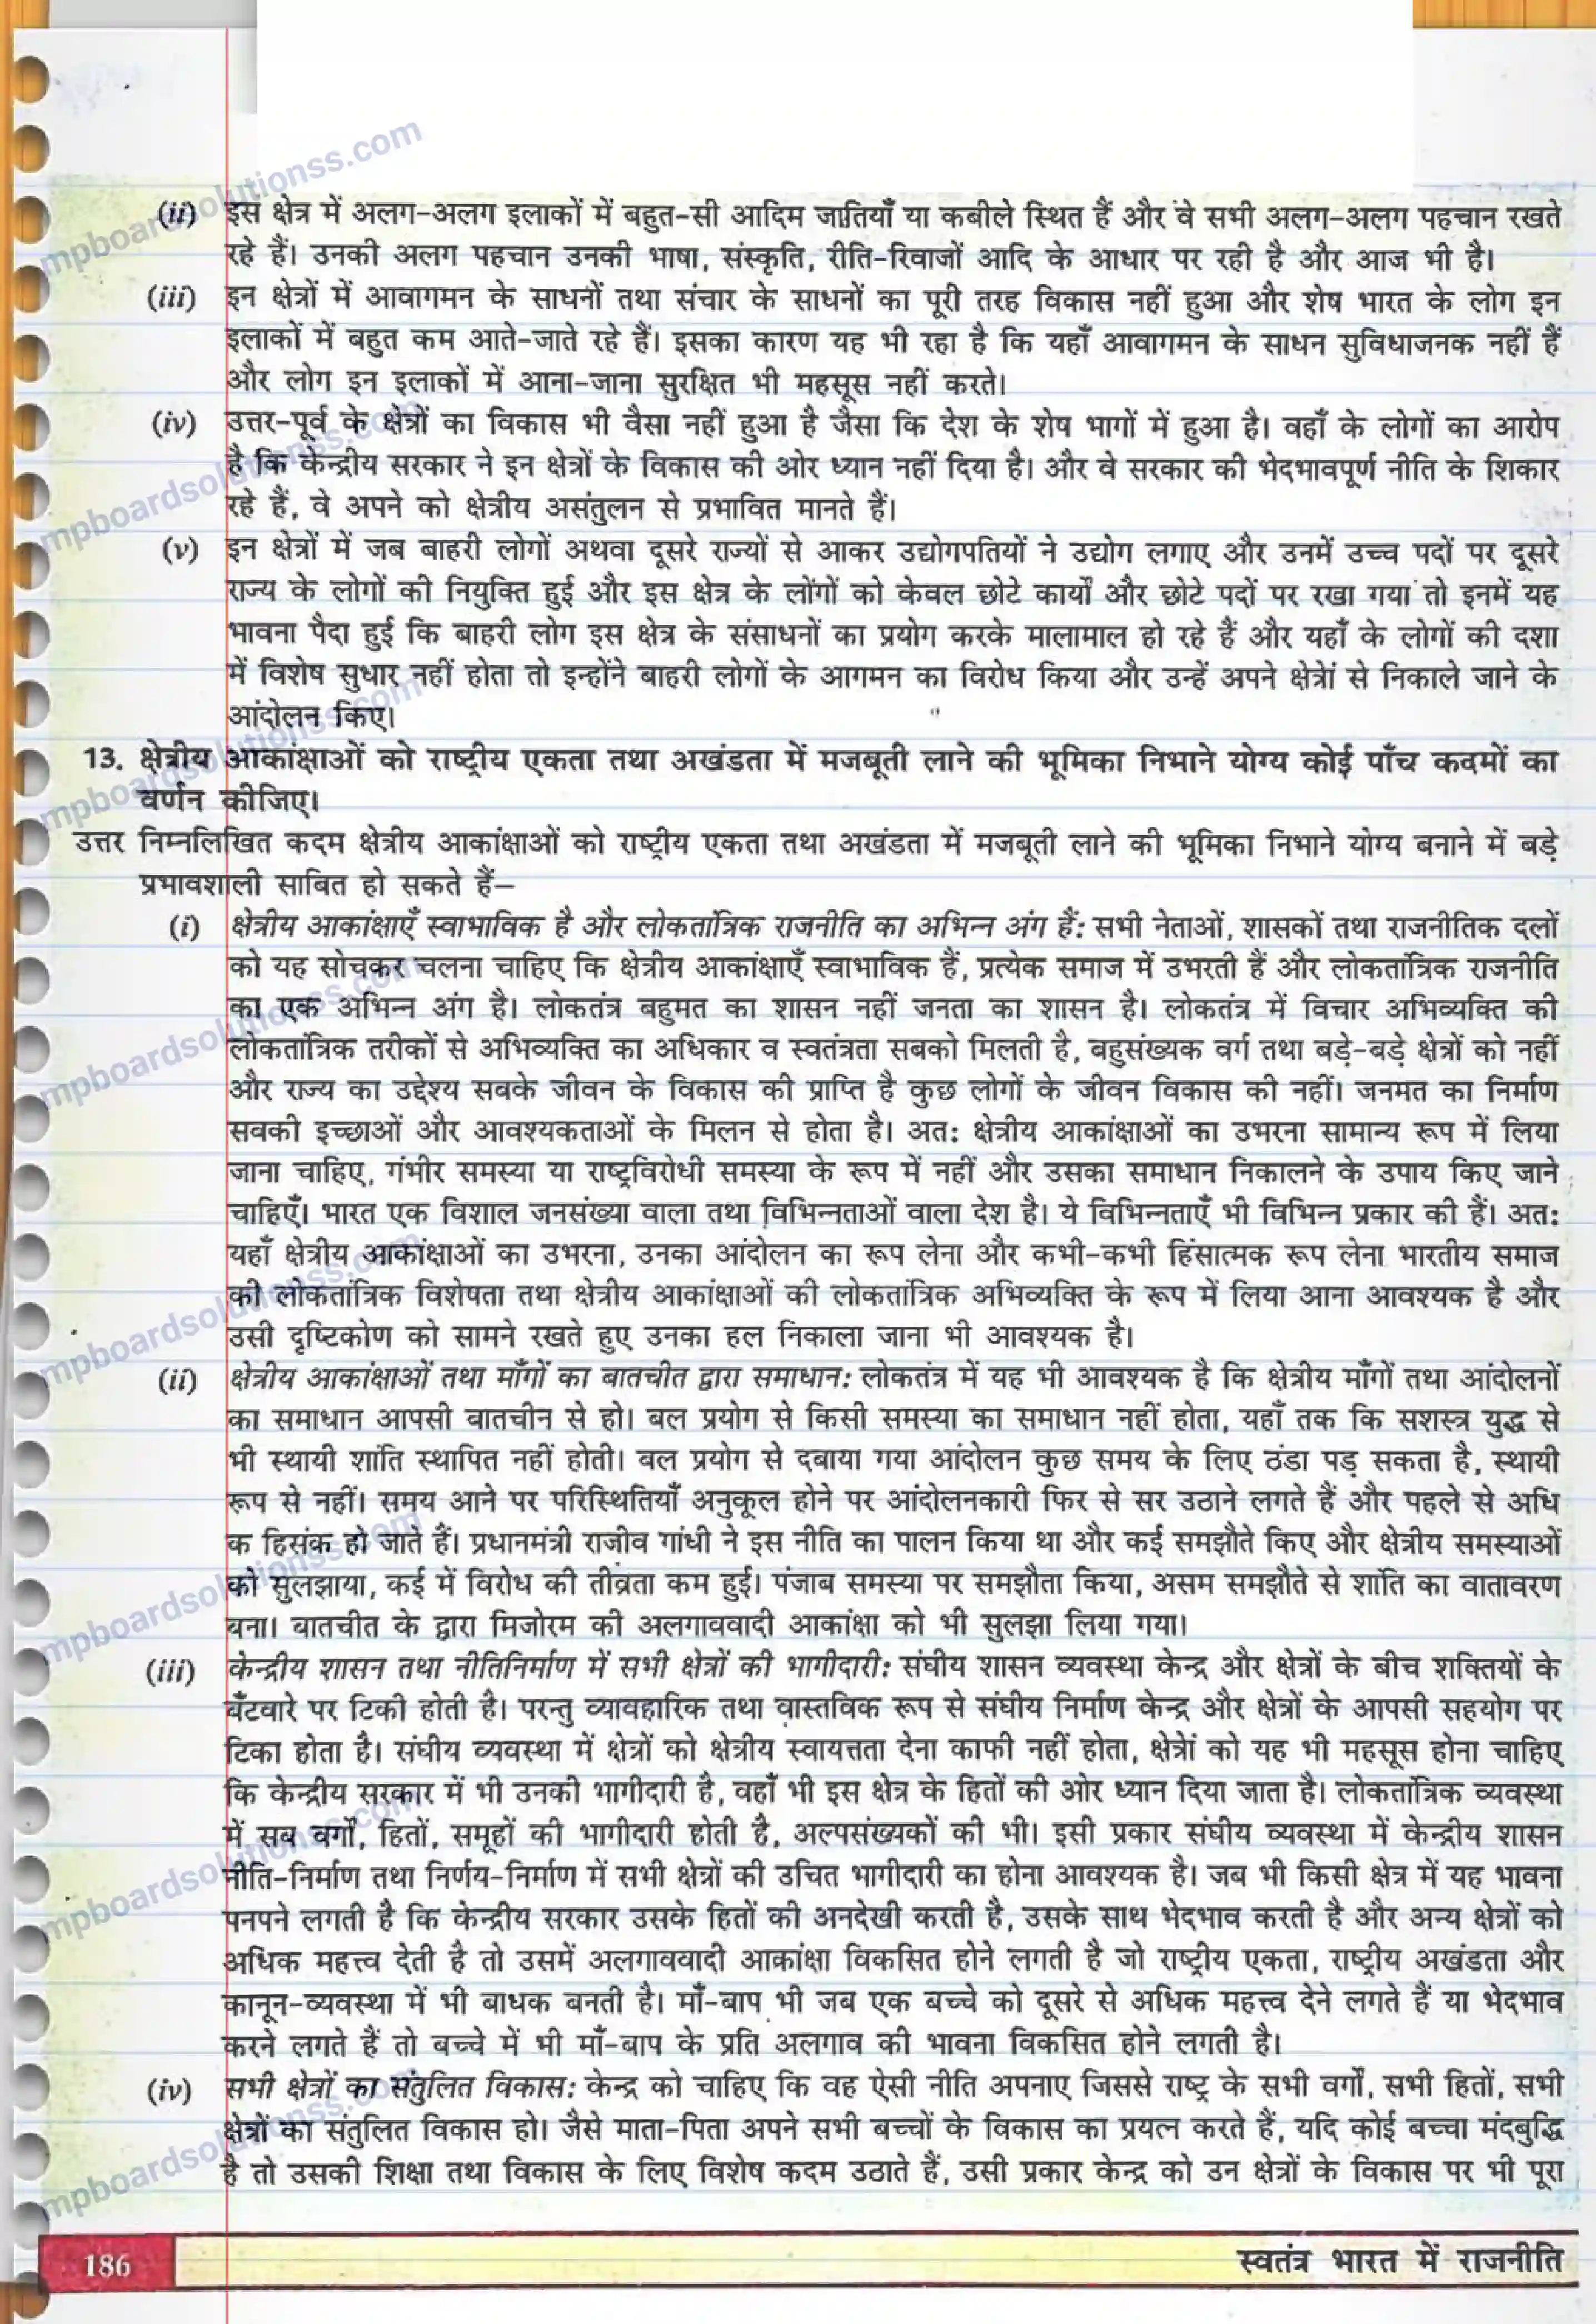 (ii) इस क्षेत्र में अलग-अलग इलाकों में बहुत-सी आदिम जातियाँ या कबीले स्थित हैं और वे सभी अलग-अलग पहचान रखते
रहे हैं। उनकी अलग पहचान उनकी भाषा, संस्कृति, रीति-रिवाजों आदि के आधार पर रही है और आज भी है।
(iii) इन क्षेत्रों में आवागमन के साधनों तथा संचार के साधनों का पूरी तरह विकास नहीं हुआ और शेष भारत के लोग इन
इलाकों में बहुत कम आते-जाते रहे हैं। इसका कारण यह भी रहा है कि यहाँ आवागमन के साधन सुविधाजनक नहीं हैं
और लोग इन इलाकों में आना-जाना सुरक्षित भी महसूस नहीं करते।
(iv) उत्तर-पूर्व के क्षेत्रों का विकास भी वैसा नहीं हुआ है जैसा कि देश के शेष भागों में हुआ है। वहाँ के लोगों का आरोप
है कि केन्द्रीय सरकार ने इन क्षेत्रों के विकास की ओर ध्यान नहीं दिया है। और वे सरकार की भेदभावपूर्ण नीति के शिकार
रहे हैं, वे अपने को क्षेत्रीय असंतुलन से प्रभावित मानते हैं।
(v) इन क्षेत्रों में जब बाहरी लोगों अथवा दूसरे राज्यों से आकर उद्योगपतियों ने उद्योग लगाए और उनमें उच्च पदों पर दूसरे
राज्य के लोगों की नियुक्ति हुई और इस क्षेत्र के लोंगों को केवल छोटे कार्यों और छोटे पदों पर रखा गया तो इनमें यह
भावना पैदा हुई कि बाहरी लोग इस क्षेत्र के संसाधनों का प्रयोग करके मालामाल हो रहे हैं और यहाँ के लोगों की दशा
में विशेष सुधार नहीं होता तो इन्होंने बाहरी लोगों के आगमन का विरोध किया और उन्हें अपने क्षेत्रां से निकाले जाने के
आंदोलन किए।
13. क्षेत्रीय आकांक्षाओं को राष्ट्रीय एकता तथा अखंडता में मजबूती लाने की भूमिका निभाने योग्य कोई पाँच कदमों का
वर्णन कीजिए।
उत्तर निम्नलिखित कदम क्षेत्रीय आकांक्षाओं को राष्ट्रीय एकता तथा अखंडता में मजबूती लाने की भूमिका निभाने योग्य बनाने में बड़े
प्रभावशाली साबित हो सकते हैं–
(i) क्षेत्रीय आकांक्षाएँ स्वाभाविक है और लोकतांत्रिक राजनीति का अभिन्न अंग हैं: सभी नेताओं, शासकों तथा राजनीतिक दलों
को यह सोचकर चलना चाहिए कि क्षेत्रीय आकांक्षाएँ स्वाभाविक हैं, प्रत्येक समाज में उभरती हैं और लोकतांत्रिक राजनीति
का एक अभिन्न अंग है। लोकतंत्र बहुमत का शासन नहीं जनता का शासन है। लोकतंत्र में विचार अभिव्यक्ति की
लोकतांत्रिक तरीकों से अभिव्यक्ति का अधिकार व स्वतंत्रता सबको मिलती है, बहुसंख्यक वर्ग तथा बड़े-बड़े क्षेत्रों को नहीं
और राज्य का उद्देश्य सबके जीवन के विकास की प्राप्ति है कुछ लोगों के जीवन विकास की नहीं। जनमत का निर्माण
सबकी इच्छाओं और आवश्यकताओं के मिलन से होता है। अत: क्षेत्रीय आकांक्षाओं का उभरना सामान्य रूप में लिया
जाना चाहिए, गंभीर समस्या या राष्ट्रविरोधी समस्या के रूप में नहीं और उसका समाधान निकालने के उपाय किए जाने
चाहिएँ। भारत एक विशाल जनसंख्या वाला तथा विभिन्नताओं वाला देश है। ये विभिन्नताएँ भी विभिन्न प्रकार की हैं। अत:
यहाँ क्षेत्रीय आकांक्षाओं का उभरना, उनका आंदोलन का रूप लेना और कभी-कभी हिंसात्मक रूप लेना भारतीय समाज
की लोकतांत्रिक विशेषता तथा क्षेत्रीय आकांक्षाओं की लोकतांत्रिक अभिव्यक्ति के रूप में लिया आना आवश्यक है और
उसी दृष्टिकोण को सामने रखते हुए उनका हल निकाला जाना भी आवश्यक है।
(ii) क्षेत्रीय आकांक्षाओं तथा माँगों का बातचीत द्वारा समाधान: लोकतंत्र में यह भी आवश्यक है कि क्षेत्रीय माँगों तथा आंदोलनों
का समाधान आपसी बातचीन से हो। बल प्रयोग से किसी समस्या का समाधान नहीं होता, यहाँ तक कि सशस्त्र युद्ध से
भी स्थायी शांति स्थापित नहीं होती। बल प्रयोग से दबाया गया आंदोलन कुछ समय के लिए ठंडा पड़ सकता है, स्थायी
रूप से नहीं। समय आने पर परिस्थितियाँ अनुकूल होने पर आंदोलनकारी फिर से सर उठाने लगते हैं और पहले से अधि
क हिसंक हो जाते हैं। प्रधानमंत्री राजीव गांधी ने इस नीति का पालन किया था और कई समझौते किए और क्षेत्रीय समस्याओं
को सुलझाया, कई में विरोध की तीव्रता कम हुई। पंजाब समस्या पर समझौता किया, असम समझौते से शांति का वातावरण
बना। बातचीत के द्वारा मिजोरम की अलगाववादी आकांक्षा को भी सुलझा लिया गया।
(iii) केन्द्रीय शासन तथा नीतिनिर्माण में सभी क्षेत्रों की भागीदारी: संघीय शासन व्यवस्था केन्द्र और क्षेत्रों के बीच शक्तियों के
बँटवारे पर टिकी होती है। परन्तु व्यावहारिक तथा वास्तविक रूप से संघीय निर्माण केन्द्र और क्षेत्रों के आपसी सहयोग पर
टिका होता है। संघीय व्यवस्था में क्षेत्रों को क्षेत्रीय स्वायत्तता देना काफी नहीं होता, क्षेत्रां को यह भी महसूस होना चाहिए
कि केन्द्रीय सरकार में भी उनकी भागीदारी है, वहाँ भी इस क्षेत्र के हितों की ओर ध्यान दिया जाता है। लोकतांत्रिक व्यवस्था
में सब वर्गों, हितों, समूहों की भागीदारी होती है, अल्पसंख्यकों की भी। इसी प्रकार संघीय व्यवस्था में केन्द्रीय शासन
नीति-निर्माण तथा निर्णय-निर्माण में सभी क्षेत्रों की उचित भागीदारी का होना आवश्यक है। जब भी किसी क्षेत्र में यह भावना
पनपने लगती है कि केन्द्रीय सरकार उसके हितों की अनदेखी करती है, उसके साथ भेदभाव करती है और अन्य क्षेत्रों को
अधिक महत्त्व देती है तो उसमें अलगाववादी आकांक्षा विकसित होने लगती है जो राष्ट्रीय एकता, राष्ट्रीय अखंडता और
कानून-व्यवस्था में भी बाधक बनती है। माँ-बाप भी जब एक बच्चे को दूसरे से अधिक महत्त्व देने लगते हैं या भेदभाव
करने लगते हैं तो बच्चे में भी माँ-बाप के प्रति अलगाव की भावना विकसित होने लगती है।
(iv) सभी क्षेत्रों का संतुलित विकास: केन्द्र को चाहिए कि वह ऐसी नीति अपनाए जिससे राष्ट्र के सभी वर्गों, सभी हितों, सभी
क्षेत्रों का संतुलित विकास हो। जैसे माता-पिता अपने सभी बच्चों के विकास का प्रयत्न करते हैं, यदि कोई बच्चा मंदबुद्धि
है तो उसकी शिक्षा तथा विकास के लिए विशेष कदम उठाते हैं, उसी प्रकार केन्द्र को उन क्षेत्रों के विकास पर भी पूरा
186 स्वतंत्र भारत में राजनीति
mpboardsolutionss.com
mpboardsolutionss.com
mpboardsolutionss.com
mpboardsolutionss.com
mpboardsolutionss.com
mpboardsolutionss.com
mpboardsolutionss.com
mpboardsolutionss.com